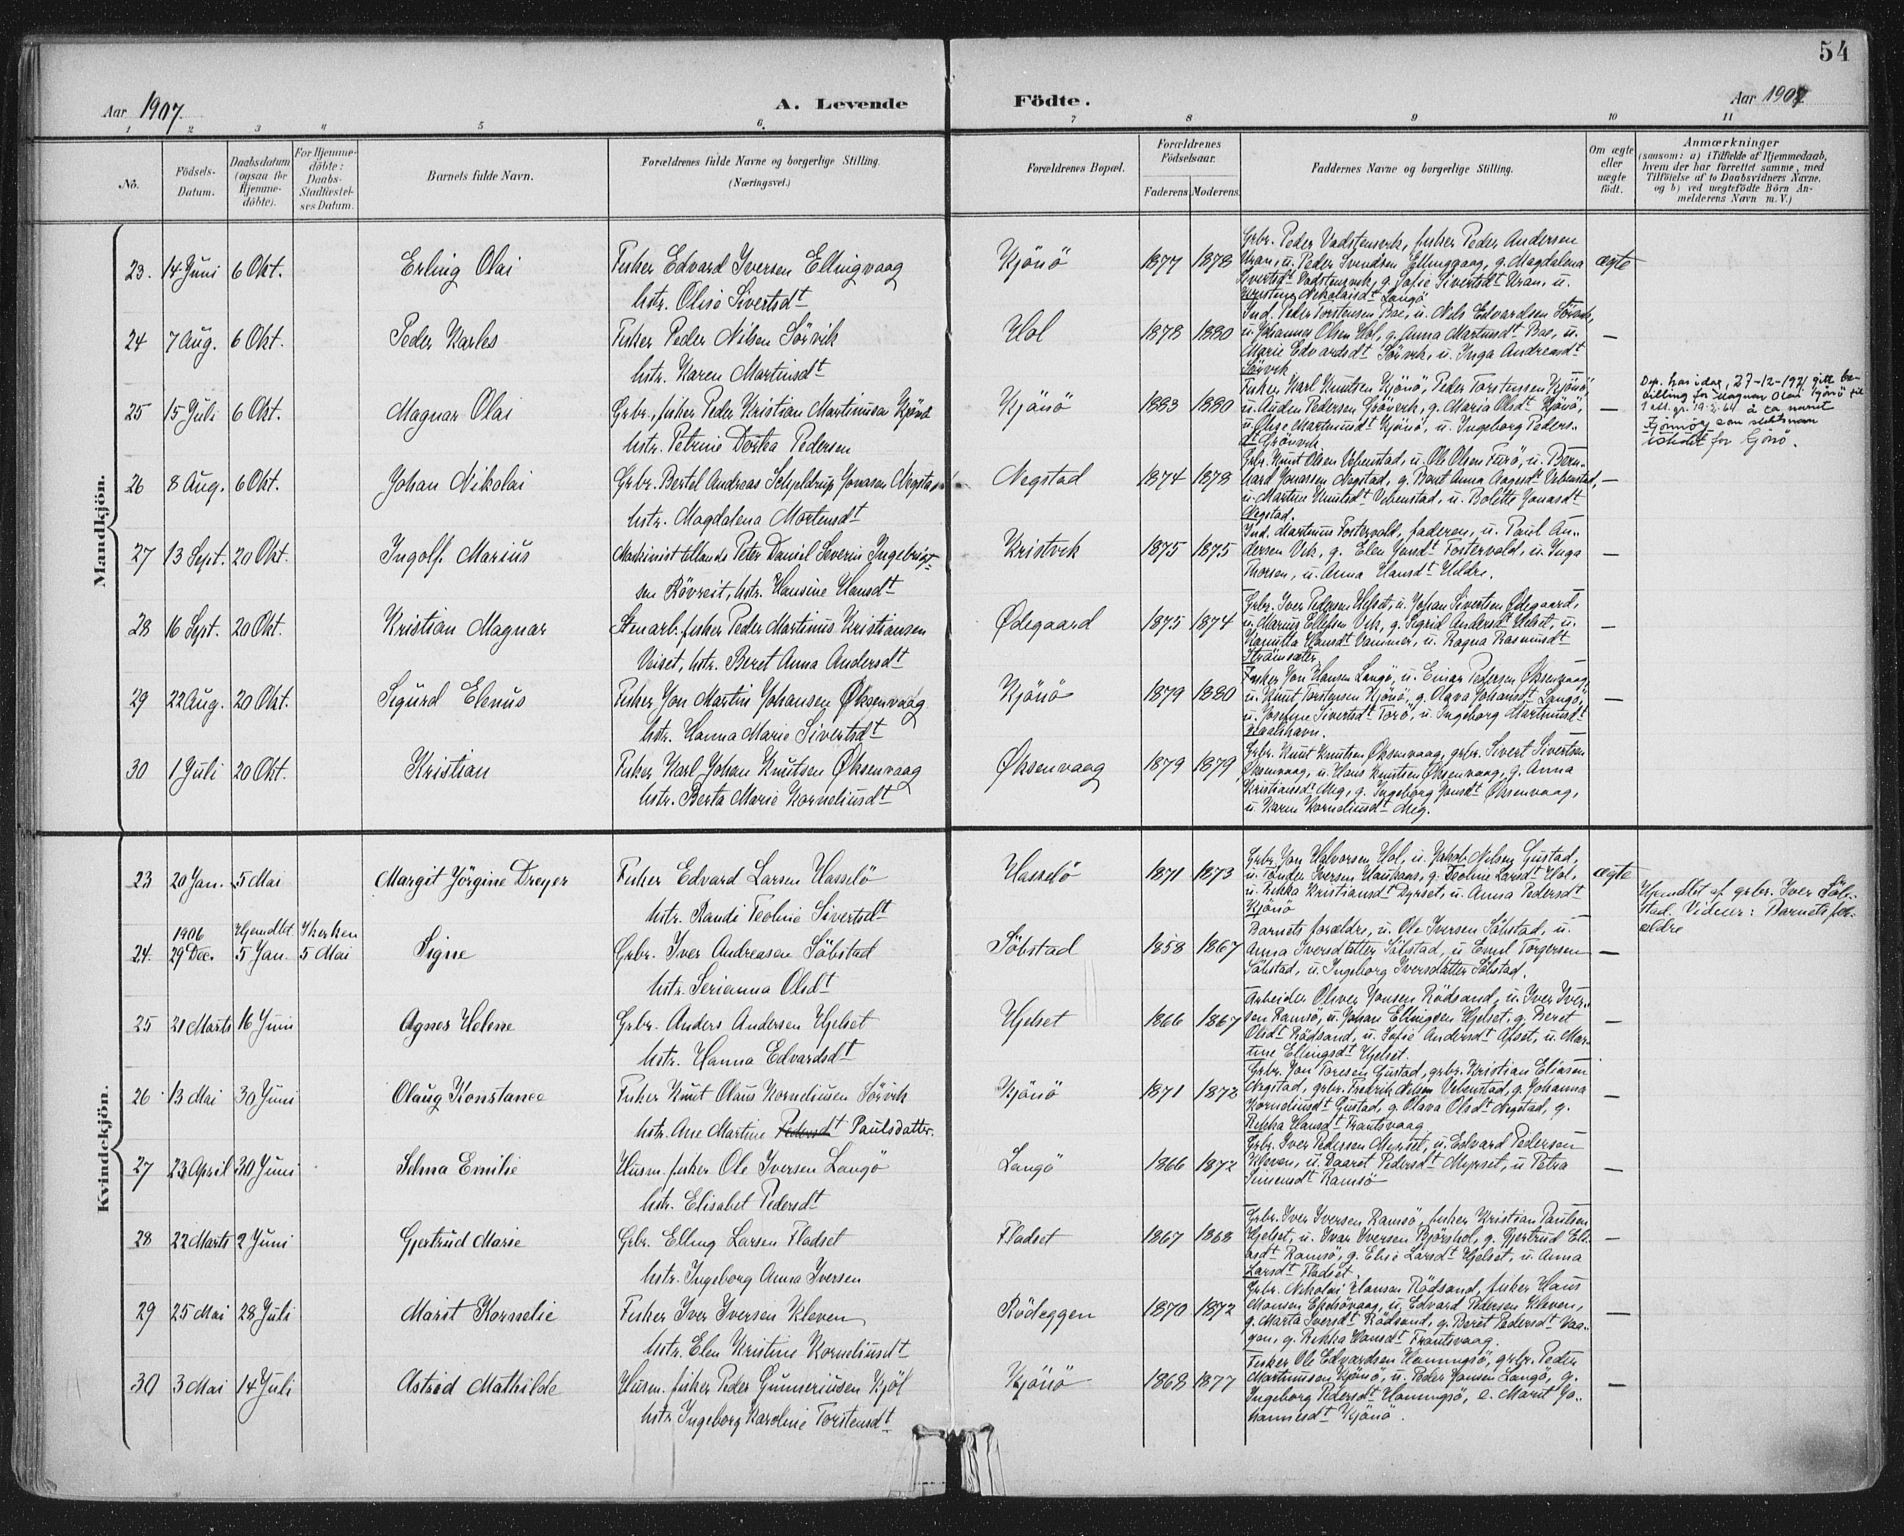 54
Aar 1907. A. Levende Födte. Aar 1907
1 2 3 4 5 6 7 8 9 10 11
No.
Födsels-
Datum.
Daabsdatum
(ogsaa for
Hjemme-
döbte).
For Hjemme-
döbte:
Daabs-
Stadfæstel-
ses Datum.
Barnets fulde Navn.
Forældrenes fulde Navne og borgerlige Stilling.
(Næringsvei.)
Forældrenes Bopæl.
Forældrenes
Födselsaar.
Faderens Moderens.
Faddernes Navne og borgerlige Stilling.
Om ægte
eller
uægte
födt.
Anmærkninger
(saasom: a) i Tilfælde af Hjemmedaab,
hvem der har forrettet samme, med
Tilföielse af to Daabsvidners Navne,
og b) ved uægtefödte Börn An-
melderens Navn m. V.)
Mandkjön.
23. 14 Juni 6 Okt. Erling Olai
Fisker Edvard Iversen Ellingvaag
hstr. Olise Sivertsdt
Kjönö 1877 1878
Grbr. Peder Vadstensvik, fisker Peder Andersen
Uran, u. Peder Svendsen Ellingvaag, g. Magdalena
Sivertsdt Vadstensvik, g. Sofie Sivertsdt Uran, u.
Kristine Nikolaisdt Langö
ægte
24 7 Aug. 6 Okt. Peder Karles
Fisker Peder Nilsen Sörvik
hstr. Karen Martinsdt
Hol 1878 1880
Ind. Peder Torstensen Bae, u. Nils Edvardsen Sörvik,
u. Johannes Olsen Hol, g. Anna Martinsdt Bae, u.
Marie Edvardsdt Sörvik, u. Inga Andreasdt
Sörvik
—
25 15 Juli 6 Okt. Magnar Olai
Grbr., fisker Peder Kristian Martinusen Kjönö
hstr. Petrine Dortea Pedersen
Kjönö 1883 1880
Fisker Karl Knutsen Kjönö, Peder Torstensen Kjönö,
u. Auden Pedersen Grönvik, g. Maria Olsdt Kjönö,
u. Olise Martinusdt Kjönö, u. Ingeborg Peders-
dt Grönvik
—
Dep. har idag, 27-12-1921 gitt be-
villing for Magnar Olai Kjönö til
å ta navnet
som slektsnavn
istedet for Gjönö.
26 8 Aug. 6 Okt. Johan Nikolai
Grbr. Bertel Andreas Schjeldrup Jonasen Negstad
hstr. Magdalena Mortensdt
Negstad 1874 1878
Grbr. Knut Olsen Vebenstad, u. Ole Olsen Furö, u. Bern-
hard Jonassen Negstad, g. Anna Aagesdt Vebenstad,
u. Martine Knutsdt Vebenstad, u. Bolette Jonasdt
Negstad.
—
27 13 Sept. 20 Okt. Ingolf Marius
Maskinist tillands Peter Daniel Severin Ingebrigt-
sen Rövreit, hstr. Hansine Hansdt
Kristvik 1875 1875
Ind. Martinus Fostervold, faderen, u. Paul An-
dersen Vik, g. Elen Jonsdt Fostervold, u. Inga
Thorsen, u. Anna Hansdt Hildre.
—
28 16 Sept. 20 Okt. Kristian Magnar
Stenarb. fisker Peder Martinus Kristiansen
Veiset, hstr. Beret Anna Andersdt
Ødegaard 1875 1874
Grbr. Iver Pedersen Helset, u. Johan Sivertsen Ødegaard,
u. Marius Ellefsen Vik, g. Sigrid Andersdt Helset, u.
Hansdt Vammer, u. Ragna Rasmusdt
—
29 22 Aug. 20 Okt. Sigurd Elenus
Fisker Jon Martin Johansen Øksenvaag
hstr. Hanna Marie Sivertsdt
Kjönö 1879 1880
Fisker Jon Hansen Langö, u. Einar Pedersen Øksenvaag,
u. Knut Torstensen Kjönö, g. Olava Johansdt Langö,
u. Josefine Sivertsdt Torö, u. Ingeborg Martinusdt
—
30 1 Juli 20 Okt. Kristian
Fisker Karl Johan Knutsen Øksenvaag
hstr. Berta Marie Korneliusdt
Øksenvaag 1879 1879
Grbr. Knut Knutsen Øksenvaag, grbr. Sivert Sivertsen
Øksenvaag, u. Hans Knutsen Øksenvaag, g. Anna
Kristiansdt Meg, g. Ingeborg Jonsdt Øksenvaag,
u. Karen Korneliusdt Meg.
Kvindekjön.
23 20 Jan. 5 Mai Margit Jörgine Dreyer
Fisker Edvard Larsen Hasselö
hstr. Randi Teoline Sivertsdt
Hasselö 1871 1873
Grbr. Jon Halvorsen Hol, u. Jakob Nilsen Gustad,
u. Iversen g. Teoline Larsdt Hol,
u. Rekka Kristiansdt Dyrset, u. Anna Pedersdt
Kjönö
ægte
24. 1906 29 Dec. Hjemdbt 5 Jan. I kirken 5 Mai Signe
Grbr. Iver Andreasen Söbstad
hstr. Serianna Olsdt
Söbstad 1858 1867
Barnets forældre, u. Ole Iversen Söbstad, u.
Anna Iversdatter Söbstad, u. Emil Torgersen
Söbstad, u. Ingeborg Iversdatter Söbstad.
—
Hjemdbt af grbr. Iver Söb-
stad. Vidner: Barnets for-
ældre
25 21 Marts 16 Juni Agnes Helene
Grbr. Anders Andersen Hjelset
hstr. Hanna Edvardsdt
Hjelset 1866 1867
Arbeider Oliver Jonsen Rödsand, u. Iver Iver-
sen Ramsö, u. Johan Ellingsen Hjelset, g. Beret
Olsdt Rödsand, u. Sofie Andersdt Afset, u. Mar-
tine Ellingsdt Hjelset.
—
26 13 Mai 30 Juni Olaug Konstance
Fisker Knut Olaus Korneliusen Sörvik
hstr. Ane Martine Pedersdt Paulsdatter.
Kjönö 1871 1872
Grbr. Jon Toresen Gustad, grbr. Kristian Eliasen
Negstad, grbr. Fredrik Nilsen Vebenstad, g. Johanna
Korneliusdt Gustad, g. Olava Olsdt Negstad, g.
Rekka Hansdt Frantsvaag
27 23 April 30 Juni Selma Emilie
Husm. fisker Ole Iversen Langö
hstr. Elisabet Pedersdt
Langö 1866 1872
Grbr. Iver Pedersen Myrset, u. Edvard Pedersen
Kleven, u. Daaret Pedersdt Myrset, u. Petra
Ramsö
—
28 22 Marts 2 Juni Gjertrud Marie
Grbr. Elling Larsen Fladset
hstr. Ingeborg Anna Iversen
Fladset 1867 1868
Grbr. Iver Iversen Ramsö, fisker Kristian Paulsen
Hjelset, u. Ivar Iversen Björshol, g. Gjertrud Eli-
asdt Ramsö, g. Elise Larsdt Hjelset, u. Anna
Larsdt Fladset
—
29 25 Mai 28 Juli Marit Kornelie
Fisker Iver Iversen Kleven
hstr. Elen Kristine Korneliusdt
Rödeggen 1870 1872
Grbr. Nikolai Hansen Rödsand, fisker Hans
Monsen u. Edvard Pedersen Kleven,
g. Marta Iversdt Rödsand, g. Beret Pedersdt Vaa-
gen, g. Rekka Hansdt Frantsvaag.
—
30 3 Mai 14 Juli Astrid Mathilde
Husm. fisker Peder Gunneriusen Kjöl
hstr. Ingeborg Karoline Torstensdt
Kjönö 1868 1877
Fisker Ole Edvardsen Honningsö, grbr. Peder
Martinusen Kjönö, u. Peder Jonsen Langö, g.
Ingeborg Pedersdt Honningsö, e. Marit Jo-
hannesdt Kjönö.
—